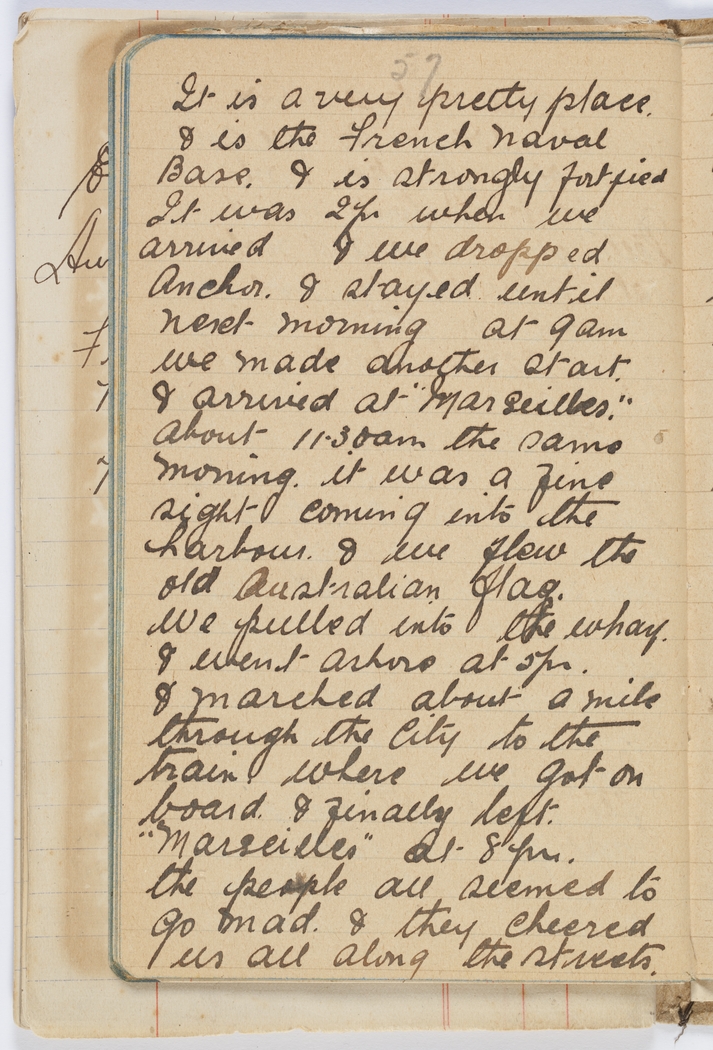 57
It is a very pretty place.
& is the French Naval
Base. & is strongly fortfied
It was 2pm when we
arrived & we dropped
Anchor. & stayed until
next morning at 9am
we made another start.
& arrived at "Marseilles."
about 11.30am the same
morning. it was a fine
sight coming into the
harbour. & we flew the
old Australian flag.
We pulled into the whay.
& went ashore at 5pm.
& marched about a mile
through the City to the
train where we got on
board. & finally left.
"Marseilles" at 8pm.
the people all seemed to
go mad. & they cheered
us all along the streets.